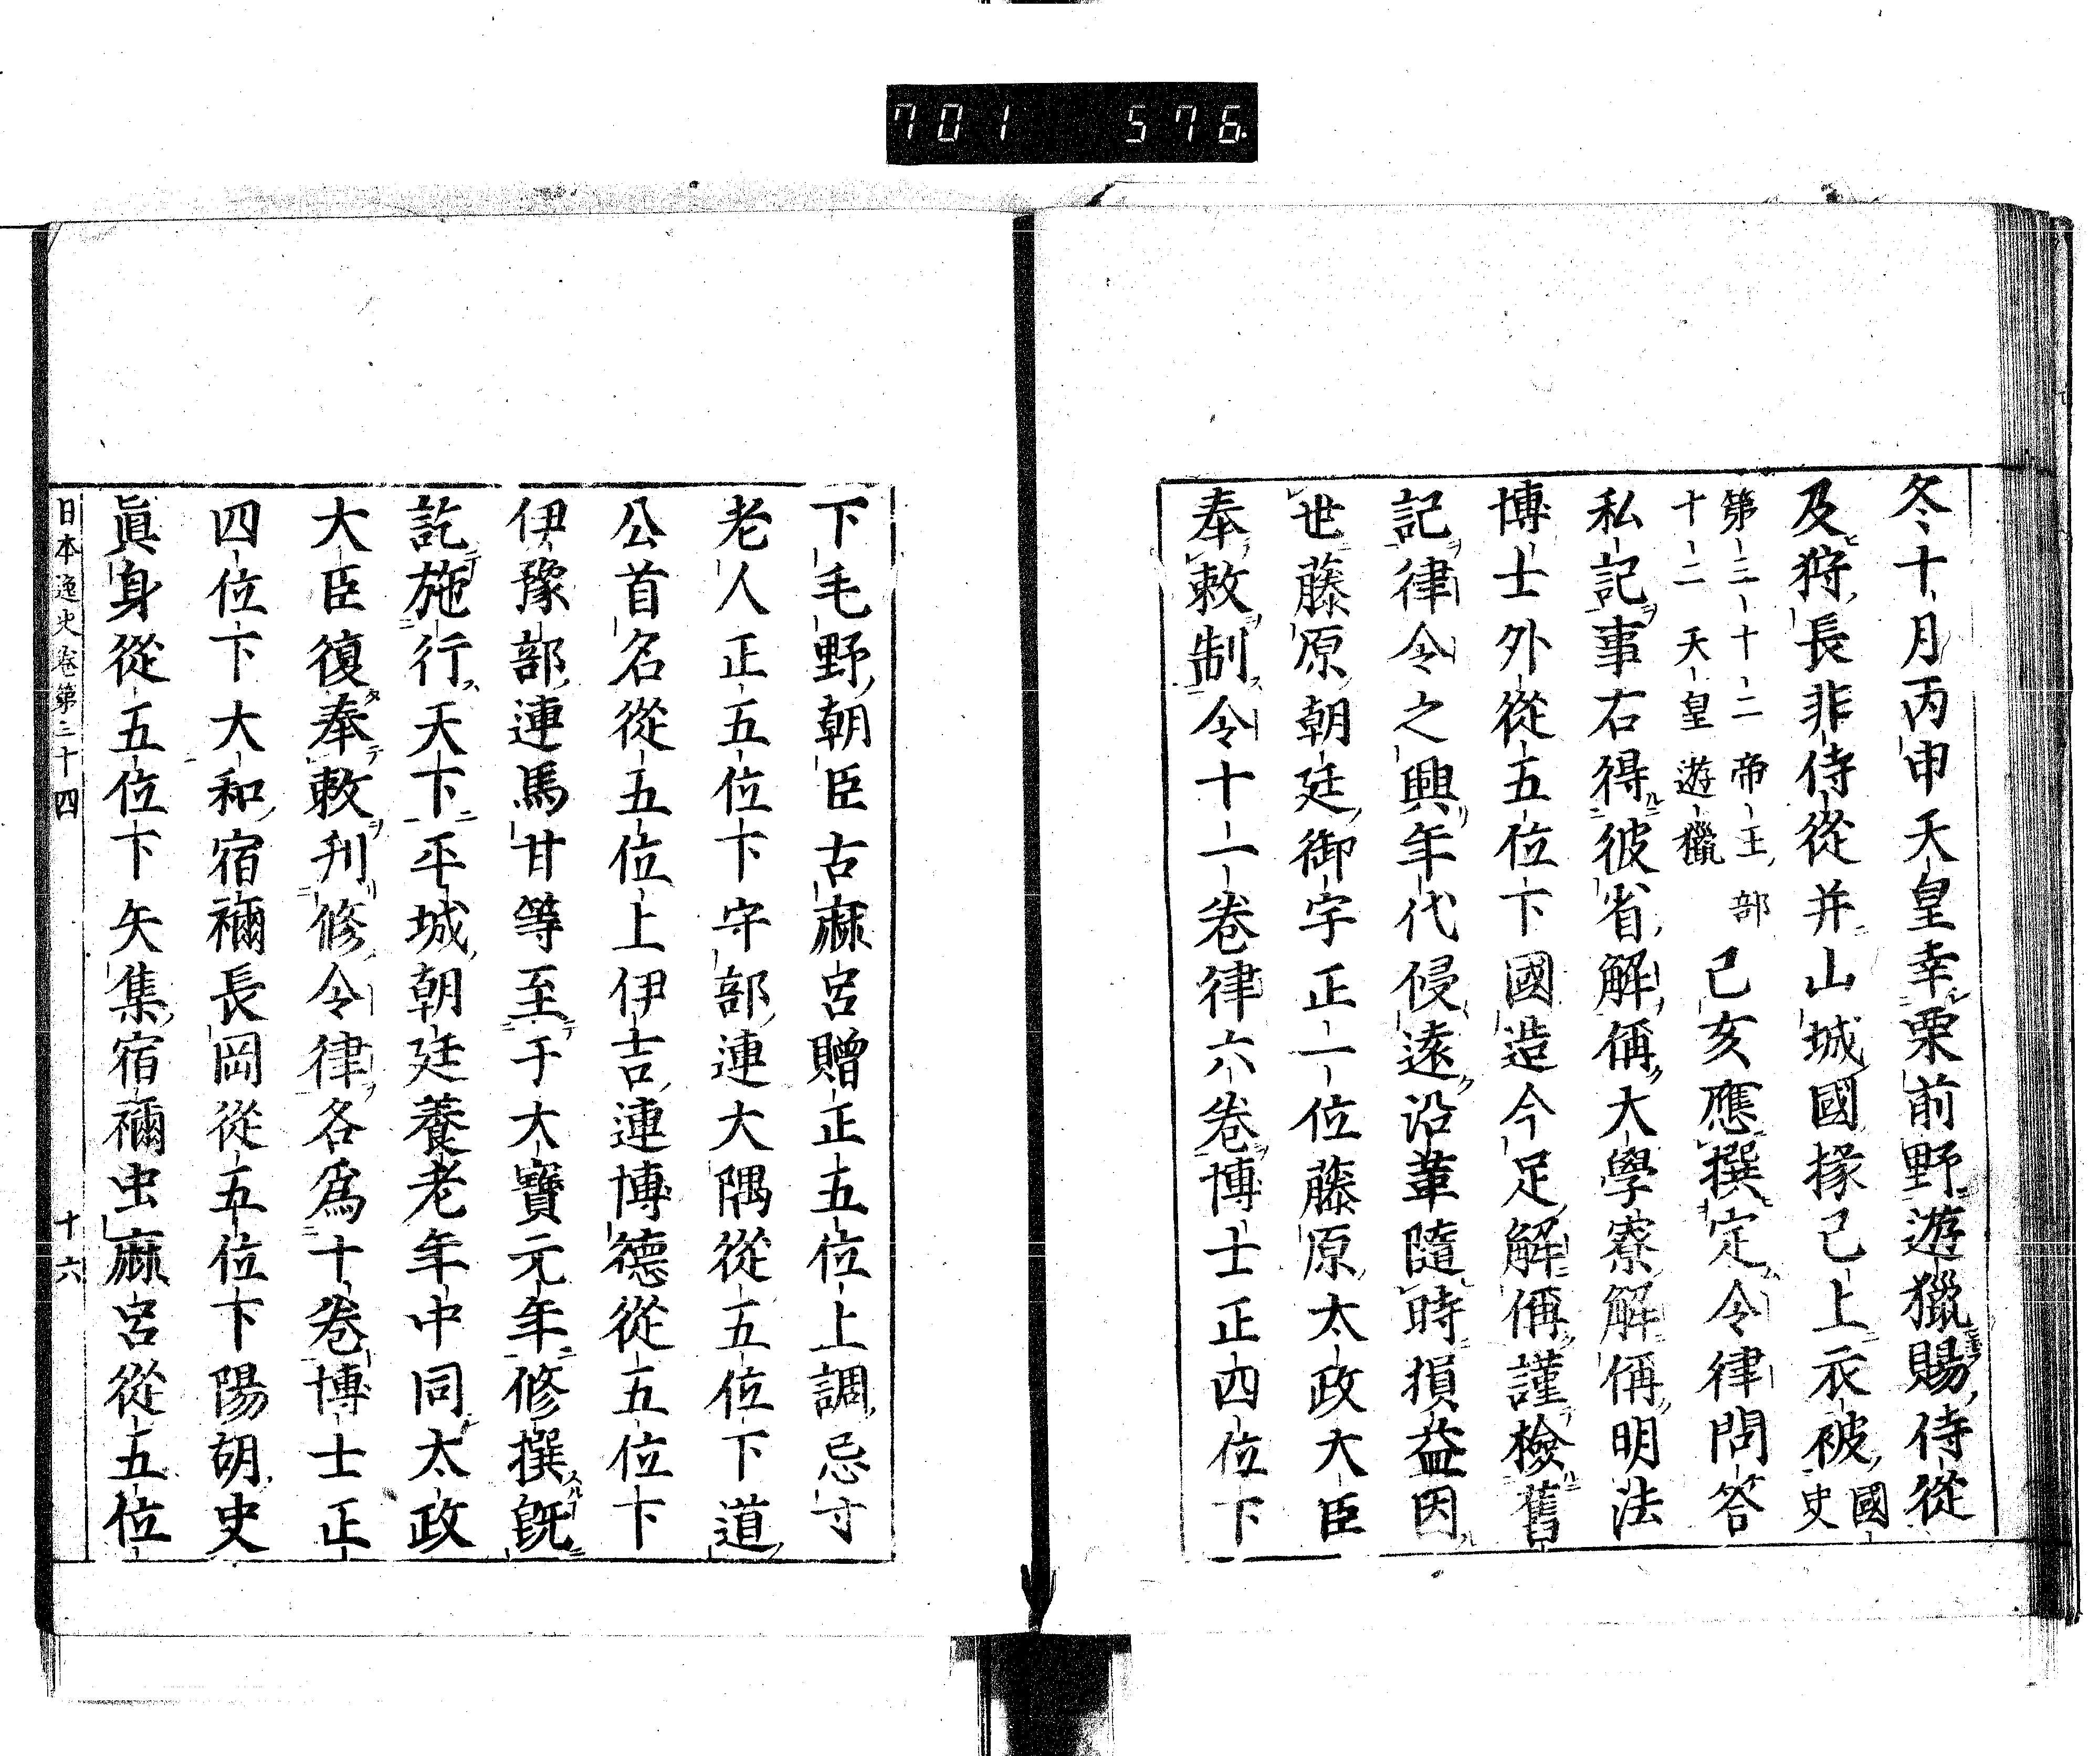 701 576
冬十月丙申天皇幸栗前野遊獵賜侍從
及狩長非侍從并山城國掾已上衣被國史
第三十二帝王部
十二天皇遊獵
己亥應撰定令律問答
私記事右得彼省解稱大學寮解稱明法
博士外從五位下國造今足解稱謹檢舊
記律令之興年代侵遠沿革隨時損益因
世藤原朝廷御宇正一位藤原太政大臣
奉敕制令十一卷律六卷博士正四位下
下毛野朝臣古麻呂贈正五位上調忌寸
老人正五位下守部連大隅從五位下道
公首名從五位上伊吉連博德從五位下
伊豫部連馬甘等至于大寶元年修撰既
訖施行天下平城朝廷養老年中同太政
大臣復奉敕刋修令律各爲十卷博士正
四位下大和宿禰長岡從五位下陽胡史
眞身從五位下矢集宿禰虫麻呂從五位
日本逸史卷第三十四 十六